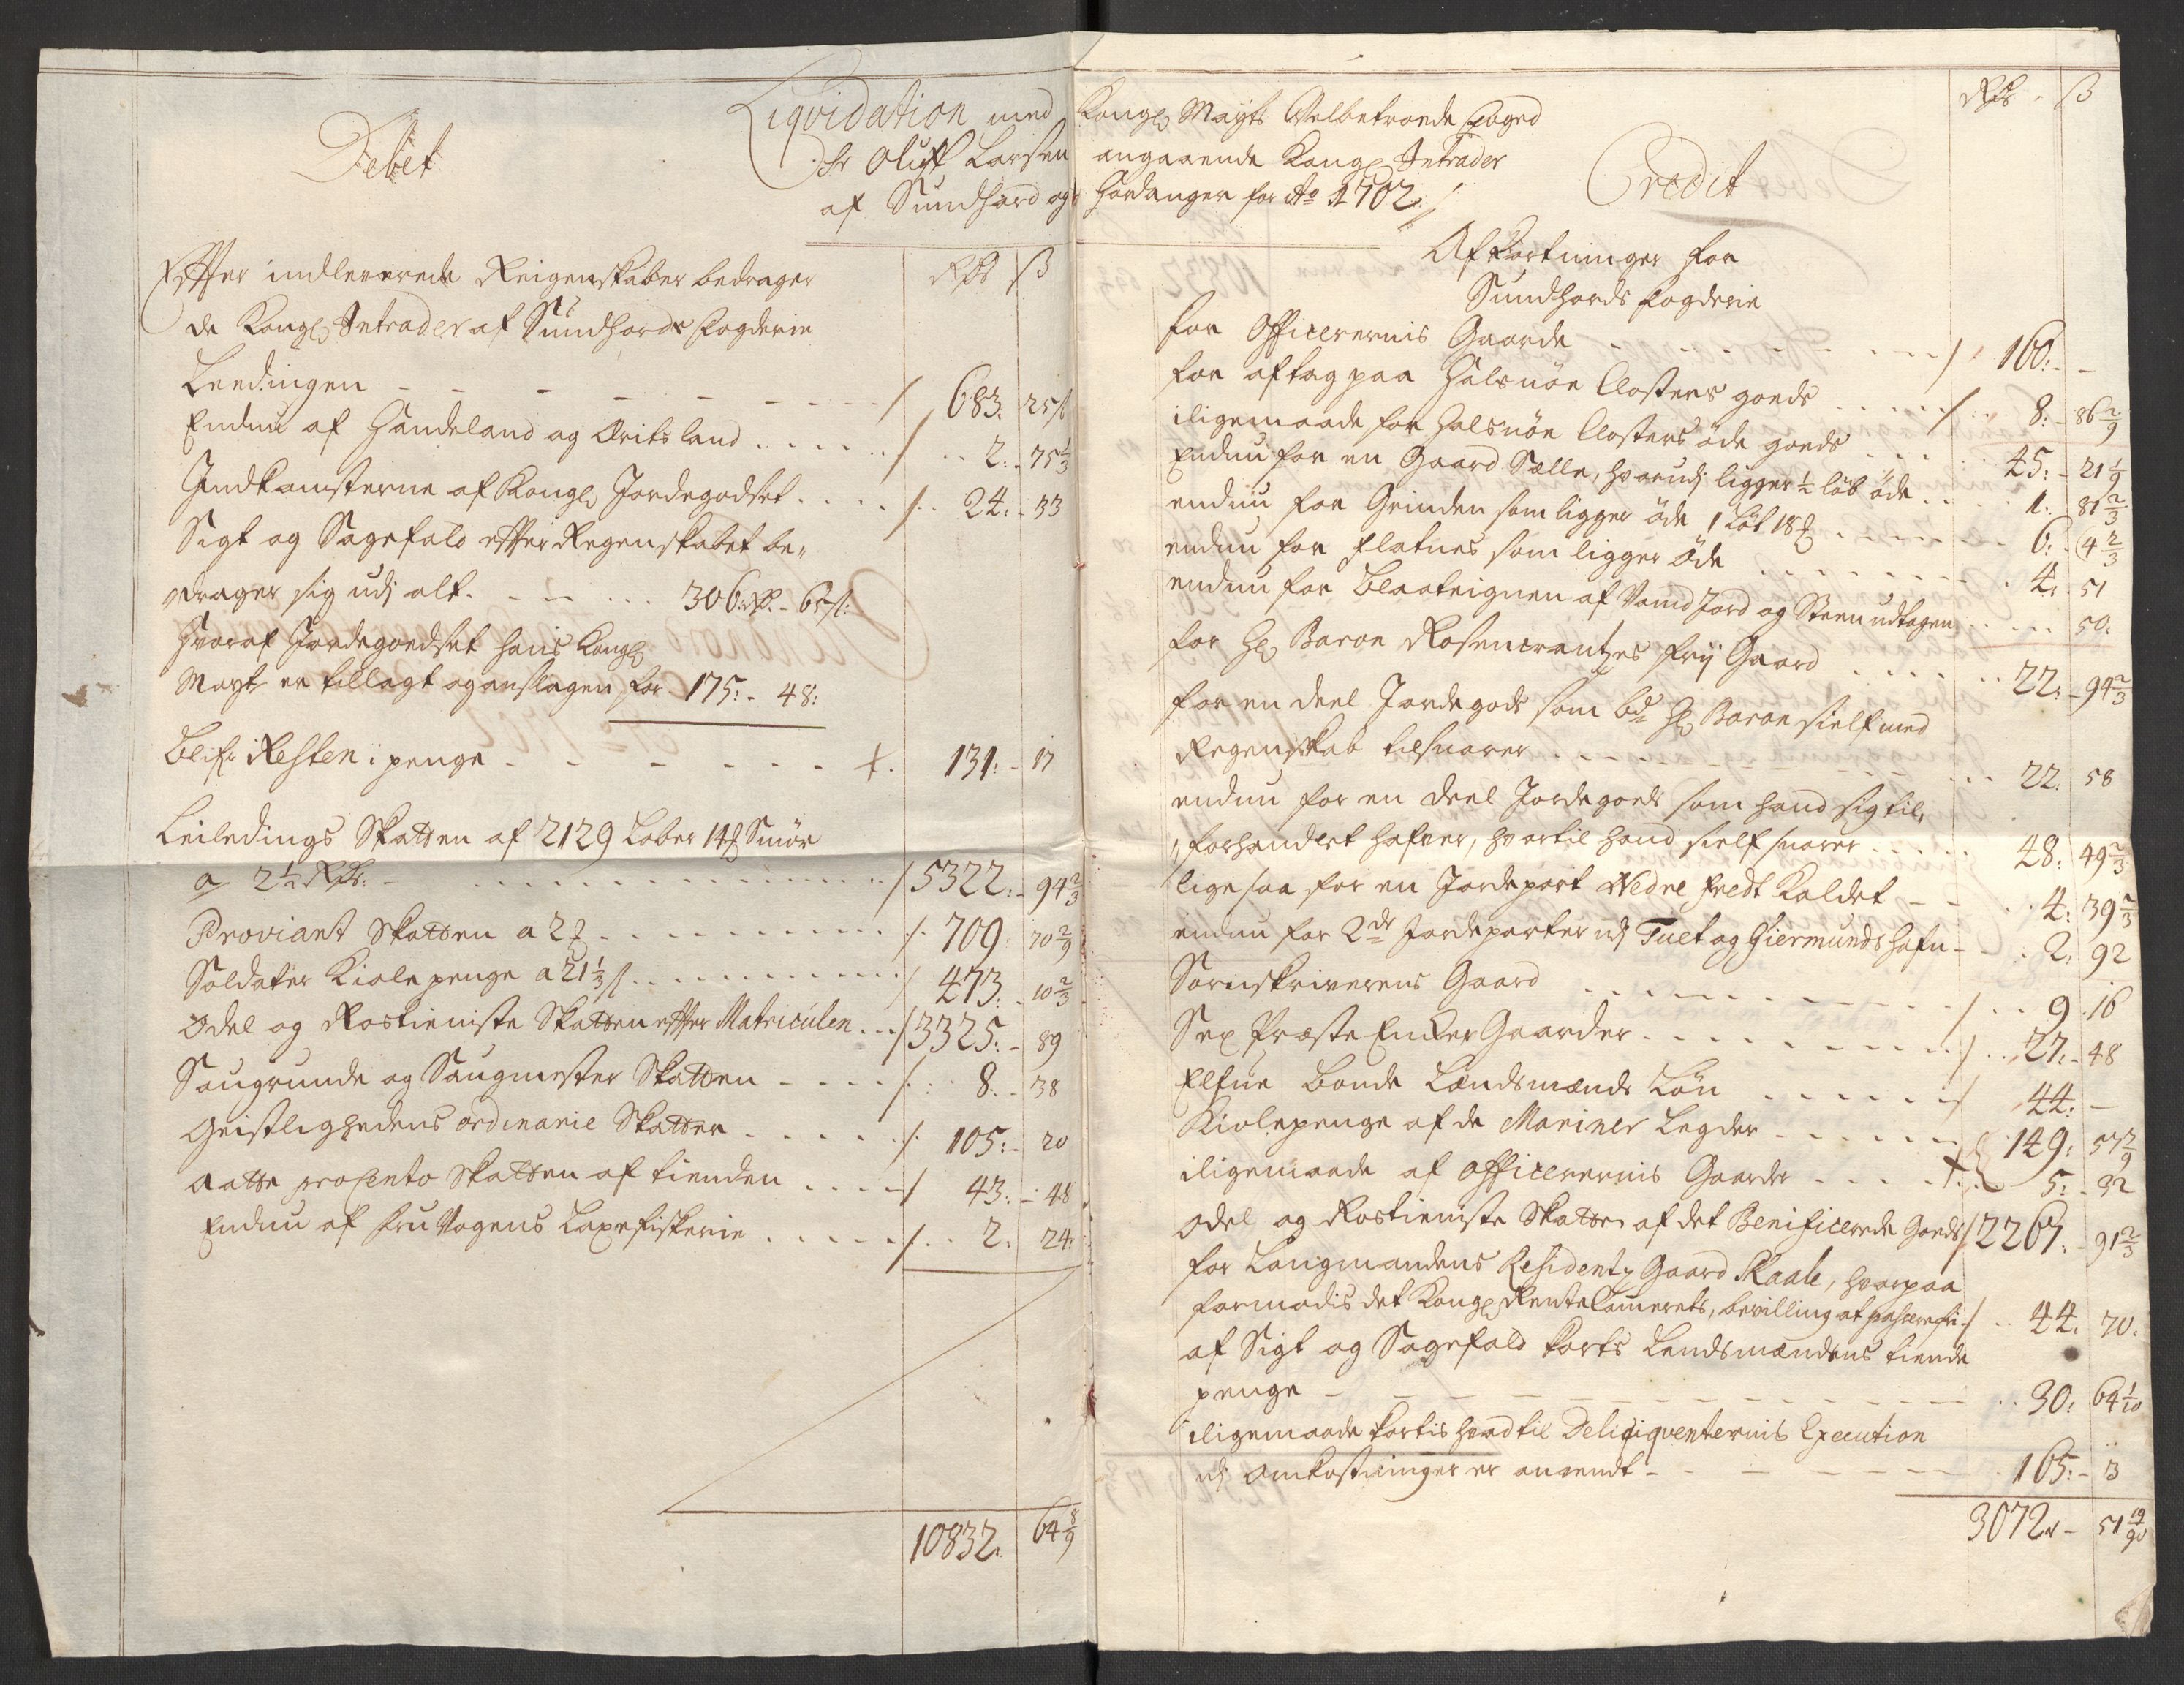 Liqvidation med Kongl Mayts Velbetroede foged
Debet
Sr Oluff Larsen angaaende Kongl Intrader
af Sundhord og Hardanger for Ao 1702
Credit
Rdr ß
Effter indleverede Reigenskaber bedrager
de Kongl Intrader af Sundhords fogderie
Rdr ß
Leedingen 683. 25 ß
Endnu af Handeland og Ørits land 2:- 75 1/3
Indkomsterne af Kongl Jordegodset 24:- 33
Sigt og Sagefald effter Regenskabet be-
drager sig udj alt 306 rdr.- 65 ß:
Hvoraf Jordegoedset hans Kongl
Mayt er tillagt og anslagen for 175:- 48:
Blifr Resten i penge 131:- 17
Leiledings Skatten af 2129 Løber 14 Smør
a 2 1/2 Rdr:- 5322:- 94 2/3
Proviant Skatten a 2 709 70 2/9
Soldater Kiole penge a 21 1/3 ß 473. 10 2/3
Odel og Rostieniste Skatten effter Matriculen 3325:- 89
Saugrunde og Saugmester Skatten 8.- 38
Geistlighedens ordinarie Skatter 105:- 20
aatte procento Skatten af tienden 43:- 48
Endnu af fru Vagens Laxefiskerie 2: 24:
10832. 64 8/9
Afkortninger for
Sundhords fogderie
for Officerernis Gaarde 160:-
for aftag paa Halsnøe Closters goeds 8:- 86 2/9
iligemaade for Halsnøe Closters øde goeds 45:- 21 1/9
Endnu for en Gaard Sælle, hvorudj ligger 1/2 løb øde 1:- 81 2/3
endnu for Grinden som ligger øde 1 Løb 18 6:- 4 2/3
endnu for flatnes som ligger øde 4: 51
endnu for Blaateignen af Vand Jord og Steen udtagen 50:
for Hl Baron Rosencrantzes frij Gaard 22:- 94 2/3
for en deel Jordegods som bde Hl Baron sielf med
Regenskab tilsvarer 22. 58
endnu for en deel Jordegoeds som hand sig til-
forhandlet hafver, hvortil hand sielf svarer 48: 49 2/3
ligesaa for en Jordepart Nedre fredt Kaldet 4: 39 2/3
endnu for 2de Jordeparter udj Tuet og Giermunds hafn 2, 92
Sorenskriverens Gaard 9. 16
Sex Præste Encker Gaarder 27:- 48
Elfve Bonde Lændsmænds Løn 44:-
Kiolepenge af de Mariner Legder 149: 57 7/9
iligemaade af Officerernis Gaarder 5:- 32
Odel og Rostieniste Skatter af det Benificerede Goeds 2267:- 91 2/3
for Laugmandens Residentz Gaard Skaale, hvorpaa
formodis det Kongl RenteCamerets, bevilling at passere fri 44. 70.
af Sigt og Sagefald korts Lendsmændens tiende
penge 30: 64 1/10
iligemaade kortis hvad til Deliqventernis Execution
udj Omkostninger er anvendt 165:- 3
3072.- 51 19/90